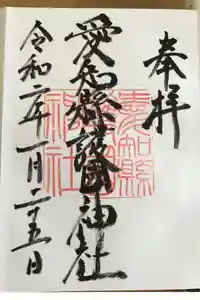 奉拝
愛知縣護國神社
令和二年一月二十五日
愛知縣護國神社